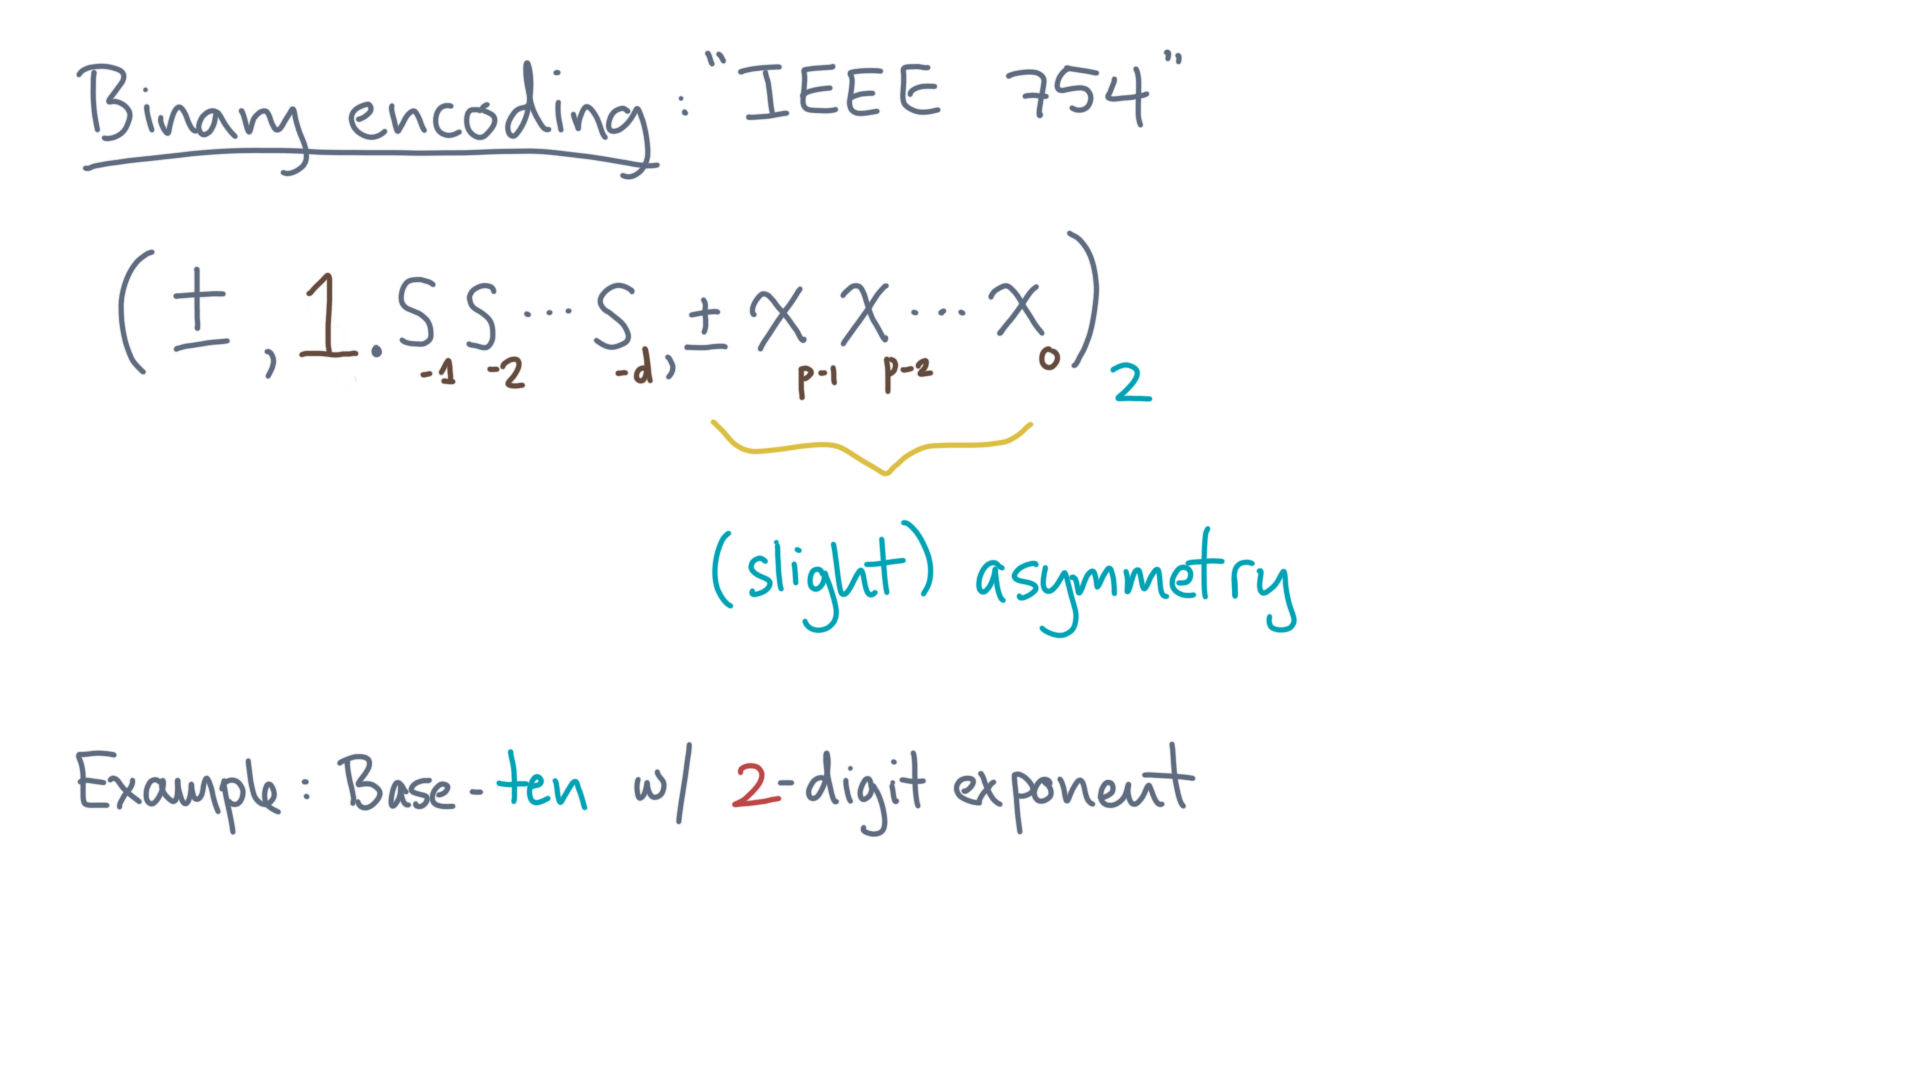 Binary encoding: "IEEE 754"
(±, 1.S₋₁S₋₂···S₋d, ±xₚ₋₁xₚ₋₂···x₀)₂
(slight) asymmetry
Example: Base-ten w/ 2-digit exponent